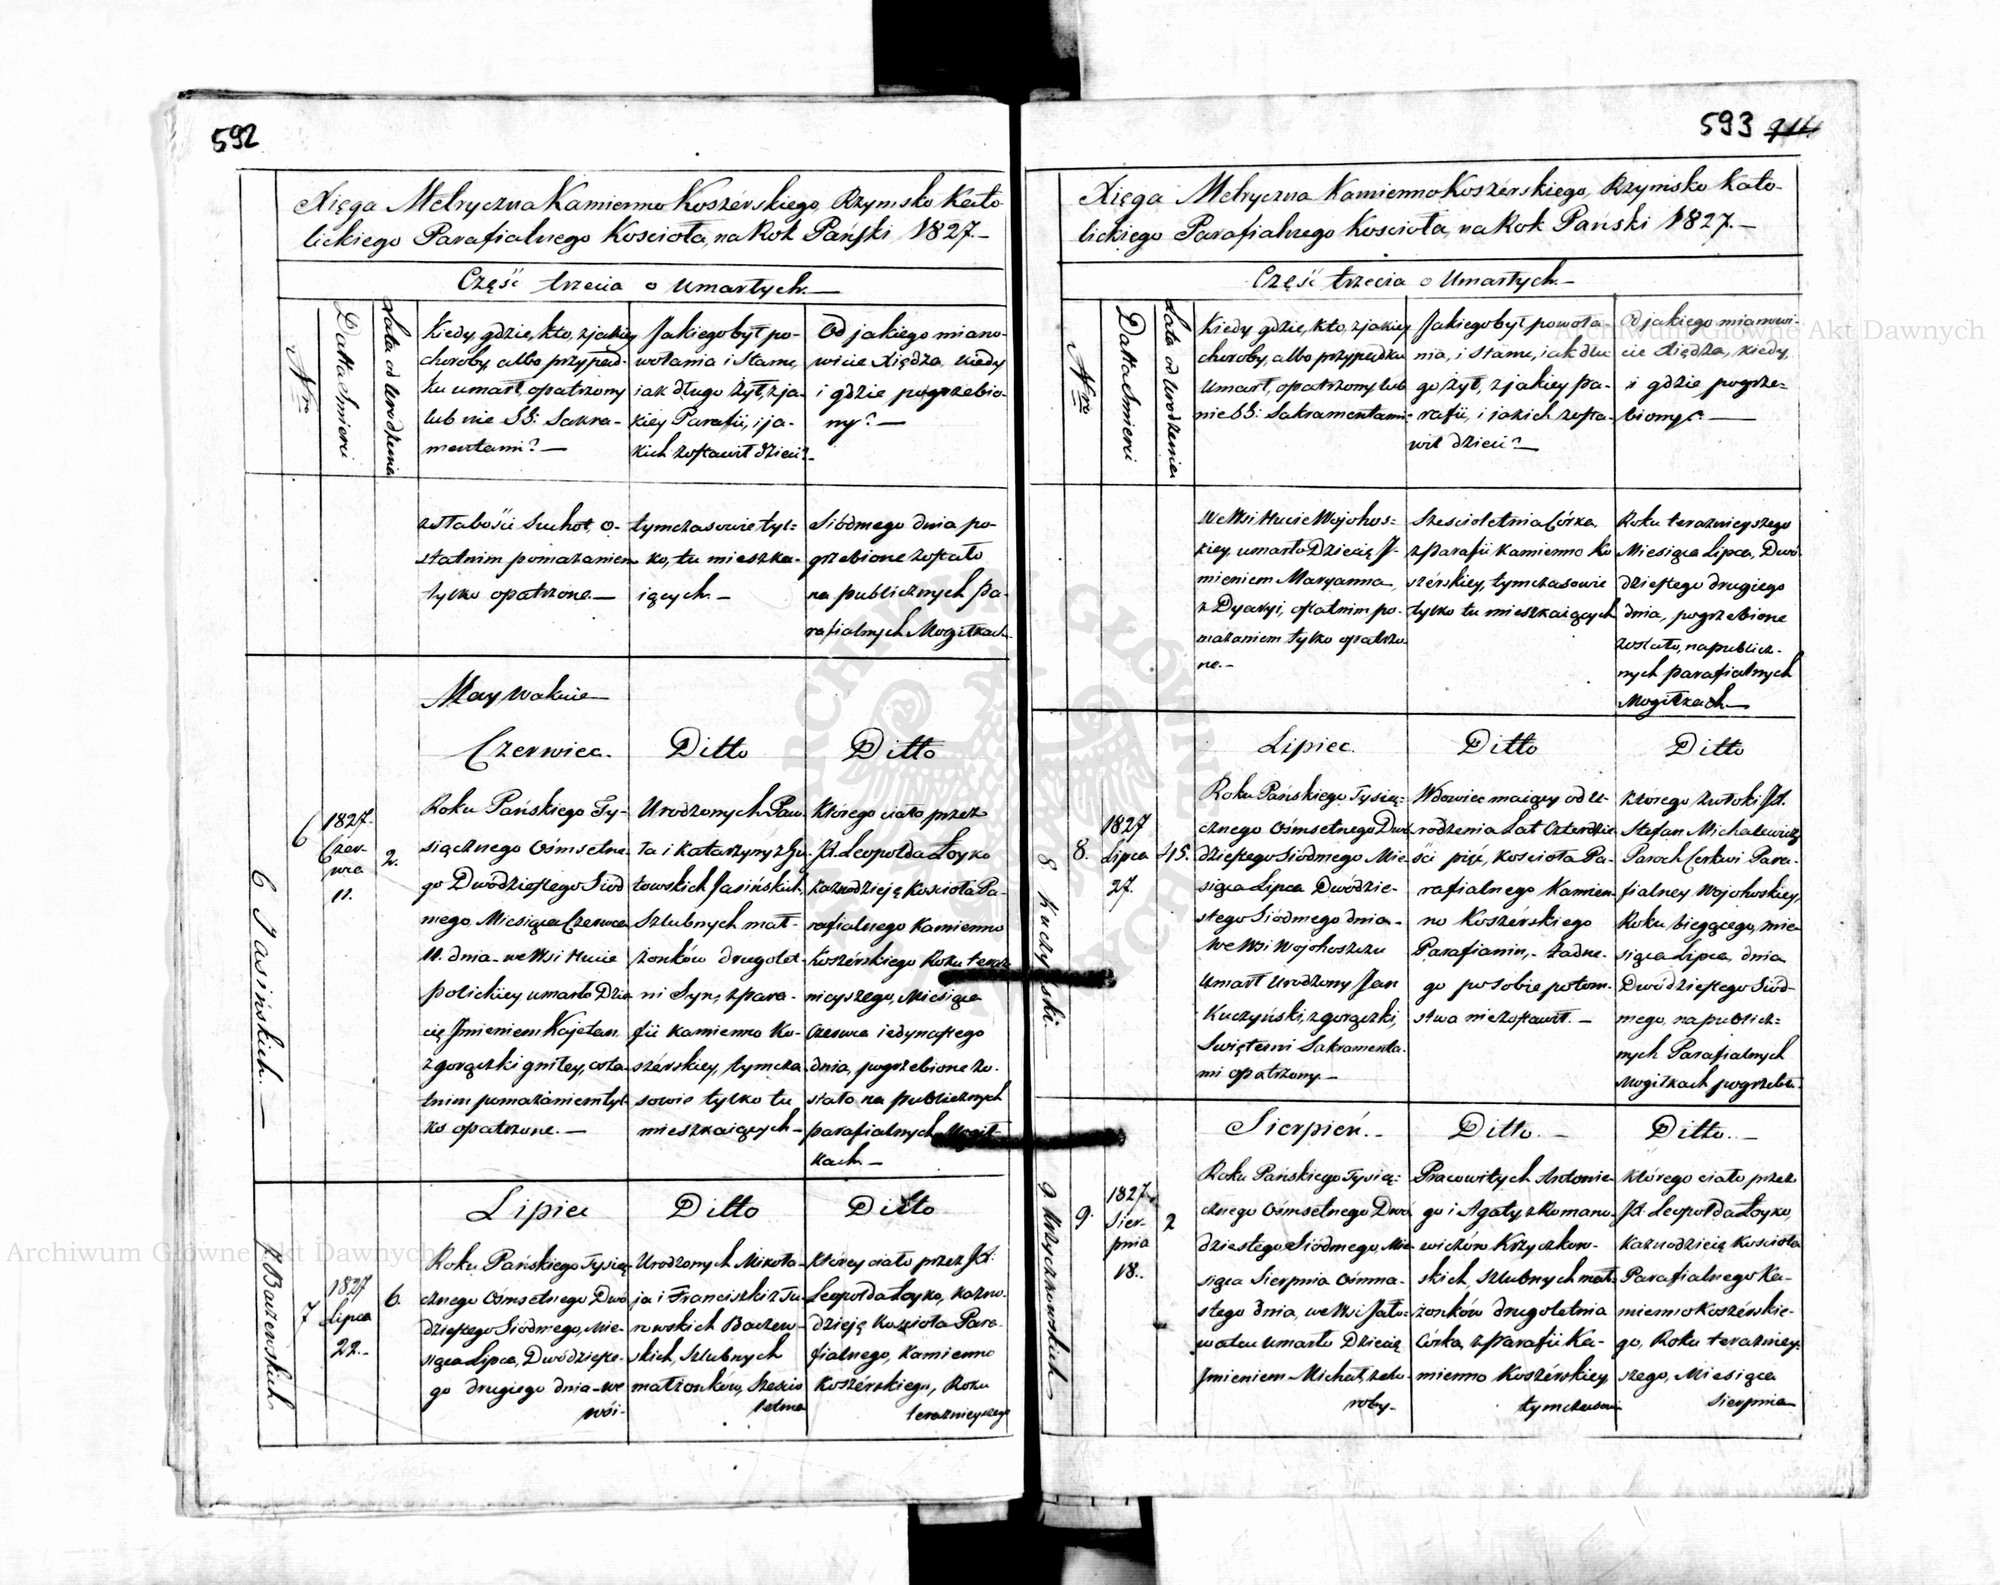 592
Xięga Metryczna Kamienno Koszérskiego, Rzymsko Kato-
lickiego Parafialnego Kościoła, na Rok Pański 1827.-
Część trzecia o Umarłych.-
Nro
Datta Smierci
Lata od Urodzenia
Kiedy, gdzie, kto, z jakiey
choroby, albo przypad-
ku umarł, opatrzony
lub nie SS: Sakra-
mentami?-
Jakiego był po-
wołania i stanu,
iak długo żył, z ja-
kiey Parafii, i ja-
kich zostawił dzieci?-
Od jakiego miano-
wicie Xiędza, kiedy
i gdzie pogrzebio-
ny?-
z słabości Suchot, o-
statnim pomazaniem
tylko opatrzone.-
tymczasowie tyl=
ko, tu mieszka-
iących.-
Siódmego dnia po-
grzebione zostało
na publicznych Pa-
rafialnych Mogiłkach
May wakuie-
Czerwiec.
Ditto
Ditto
6 Jasińskich.-
6
1827.
Czer-
wca
11.
2.
Roku Pańskiego Ty-
siącznego Ośmsetne-
go Dwódziestego Siód
mego Miesiąca Czerwca
11. dnia- we Wsi Hucie
polickiey umarło Dzie
cię Jmieniem Kajetan
z gorączki gniłey, osta-
tnim pomazaniem tyl-
ko opatrzone.-
Urodzonych Paw-
ła i Katarzyny z Gu-
towskich Jasińskich,
Szlubnych mał-
żonków drugolet-
ni Syn, z para-
fii Kamienno Ko-
szérskiey, tymcza-
sowie tylko tu
mieszkaiących-
Którego ciało przez
JX. Leopolda Łoyko
Kaznodzieję Kościoła Pa-
rafialnego Kamienno
Koszérskiego Roku teraz
nieyszego, Miesiąca
Czerwca iedynastego
dnia, pogrzebione zo-
stało na publicznych
parafialnych Mogił-
kach.-
Lipiec
Ditto
Ditto
7 Baczewskich.
7
1827
Lipca
22.-
6.
Roku Pańskiego Tysią
cznego Ośmsetnego Dwó
dziestego Siódmego, Mie-
siąca Lipca, Dwódzieste-
go drugiego dnia- we
wsi-
Urodzonych Mikoła-
ja i Franciszki z Tu-
rowskich Baczew-
skich, Szlubnych
małżonków, Szescio
letnia
Którey ciało przez JX:
Leopolda Łoyko, Kazno-
dzieję Kościoła Para-
fialnego, Kamienno
Koszérskiego, Roku
teraznieyszego
593 914
Xięga Metryczna Kamienno Koszérskiego, Rzymsko Kato-
lickiego Parafialnego Kościoła, na Rok Pański 1827.-
Część trzecia o Umarłych.-
Nro
Datta Smierci
Lata od Urodzenia
Kiedy, gdzie, kto, z jakiey
choroby, albo przypadku
Umarł, opatrzony lub
nie SS: Sakramentami-
Jakiego był powoła-
nia, i stanu, iak dłu
go żył, z jakiey pa-
rafii, i jakich zosta-
wił dzieci?-
Od jakiego mianowi-
cie Xiędza, kiedy,
i gdzie pogrze=
biony?-
We Wsi Hucie Wojohos=
kiey, umarło Dziecię J-
mieniem Maryanna,
z Dyaryi, ostatnim po-
mazaniem tylko opatrzo-
ne.-
Sześcioletnia Córka,
z Parafii Kamienno Ko
szérskiey, tymczasowie
tylko tu mieszkaiących
Roku teraznieyszego
Miesiąca Lipca, Dwó-
dziestego drugiego
dnia, pogrzebione
zostało, na publicz-
nych parafialnych
Mogiłkach.-
Lipiec.
Ditto
Ditto
8 Kuczyński.-
8.
1827
Lipca
27.
45.
Roku Pańskiego Tysią=
cznego Ośmsetnego Dwó
dziestego Siódmego Mie-
siąca Lipca Dwódzie-
stego Siódmego dnia-
We Wsi Wojohoszczu
Umarł Urodzony Jan
Kuczyński, z gorączki,
Swiętemi Sakramenta-
mi opatrzony-
Wdowiec maiący od U-
rodzenia Lat Czterdzie-
ści pięć, Kościoła Pa-
rafialnego Kamien-
no Koszérskiego
Parafianin,- Żadne-
go po sobie potom-
stwa nie zostawił.-
Którego zwłoki JX.
Stefan Michalewicz
Paroch Cerkwi Para-
fialney Wojohoskiey,
Roku bieącego, mie-
siąca Lipca, dnia
Dwódziestego Siód-
mego, na publicz=
nych Parafialnych
Mogiłkach pogrzebł.
Sierpień.-
Ditto.-
Ditto.-
9 Krzyczkowskich
9.
1827.
Sier-
pnia
18.
2
Roku Pańskiego Tysią=
cznego Ośmsetnego Dwó
dziestego Siódmego, Mie
siąca Sierpnia Ośmna-
stego dnia, we Wsi Jało-
waten umarło Dziecię
Jmieniem Michał, z cho-
roby-
Pracowitych Antonie-
go i Agaty z Romano-
wiczów Krzyczkow-
skich, Szlubnych mał-
żonków drugoletnia
Córka, z Parafii Ka-
mienno Koszérskiey
tymczasow-
Którego ciało przez
JX. Leopolda Łoyko,
Kaznodzieię Kościoła
Parafialnego Ka-
mienno Koszérskie-
go, Roku teraźniey-
szego, Miesiąca
Sierpnia
Archiwum Główne Akt Dawnych
Archiwum Główne Akt Dawnych